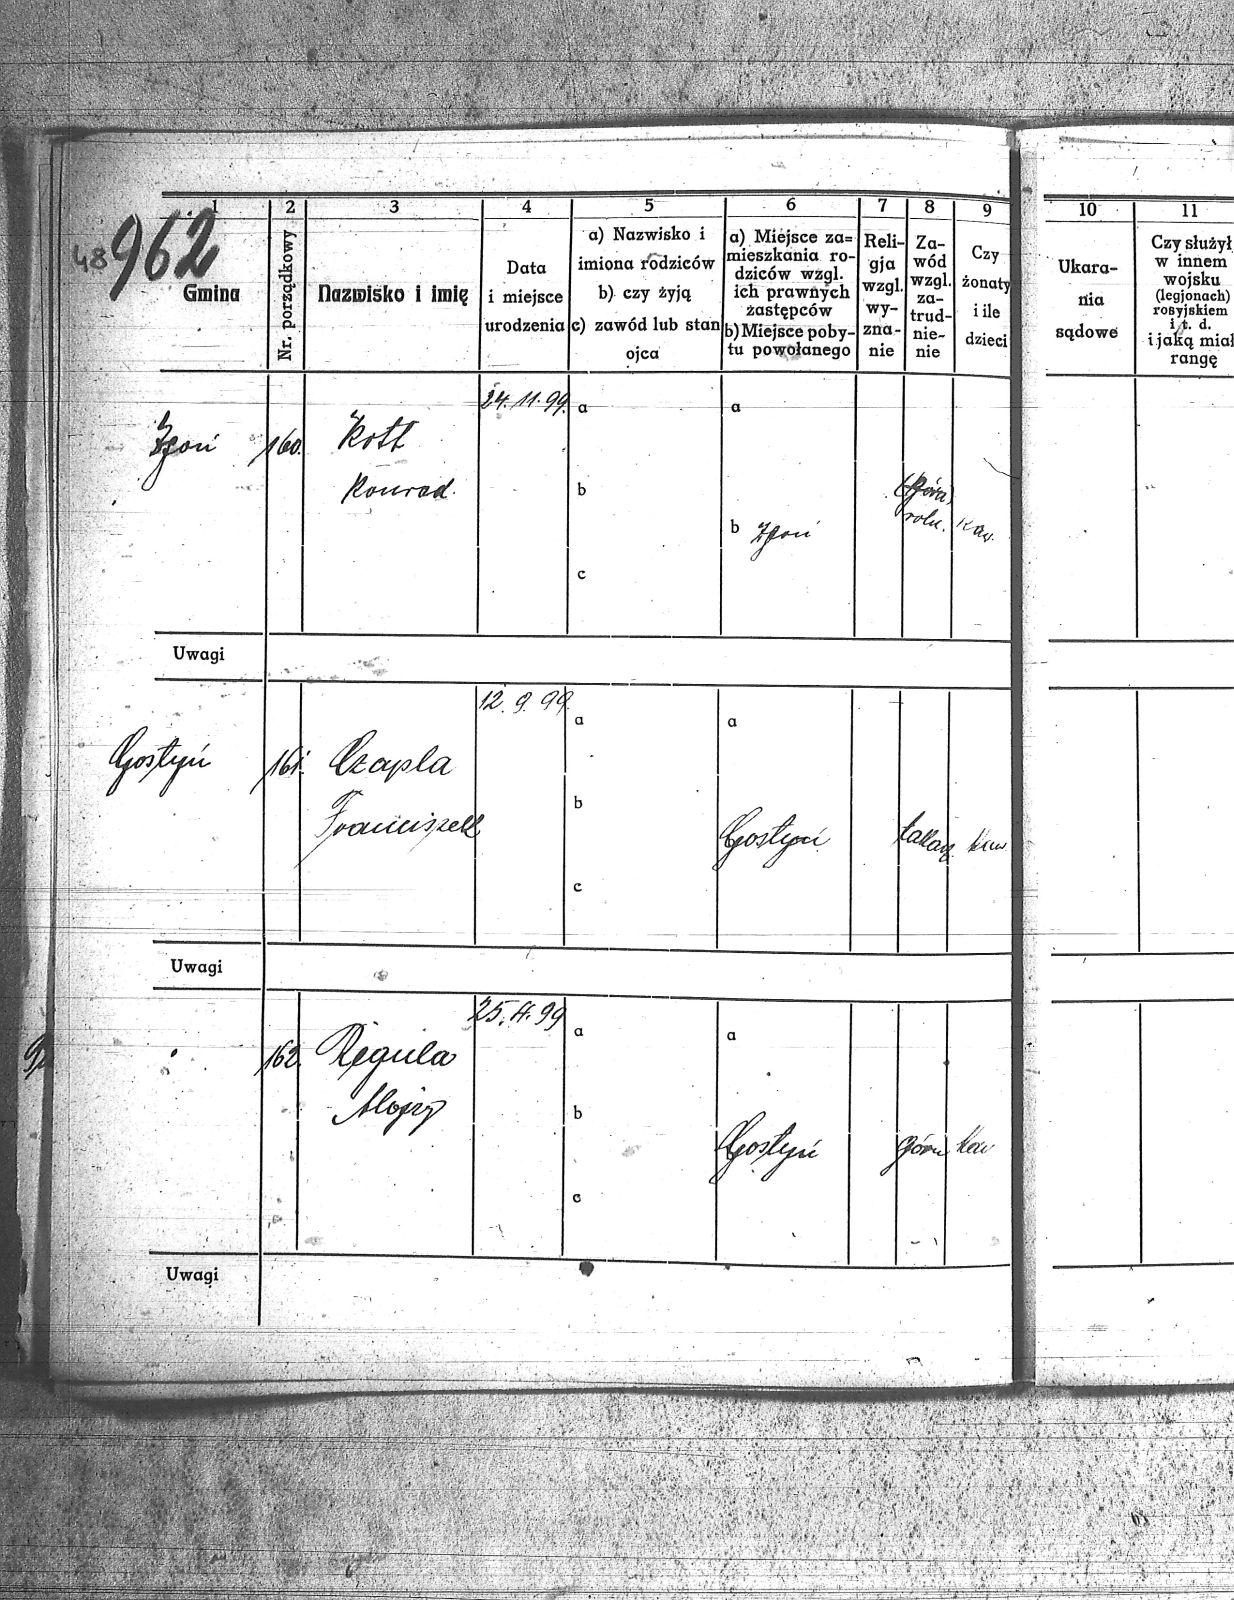 48 962
1 2 3 4 5 6 7 8 9 10 11
Gmina
Nr. porządkowy
Nazwisko i imię
Data
i miejsce
urodzenia
a) Nazwisko i
imiona rodziców
b) czy żyją
c) zawód lub stan
ojca
a) Miejsce za=
mieszkania ro-
dziców wzgl.
ich prawnych
zastępców
b) Miejsce poby-
tu powołanego
Reli-
gja
wzgl.
wy-
zna-
nie
Za-
wód
wzgl.
za-
trud-
nie-
nie
Czy
żonaty
i ile
dzieci
Ukara-
nia
sądowe
Czy służył
w innem
wojsku
(legjonach)
rosyjskiem
i t. d.
i jaką miał
rangę
24. 11. 99. a a
Zgoń 160. Kott
Konrad. b
b Zgoń roln. Kaw.
c
Uwagi
12. 9. 99. a a
Gostyń 161. Czapla
b
Franciszek
Gostyń Kaw
c
Uwagi
25. 4. 99 a a
162. Reguła
Alojzy b
Gostyń górn Kaw
c
Uwagi